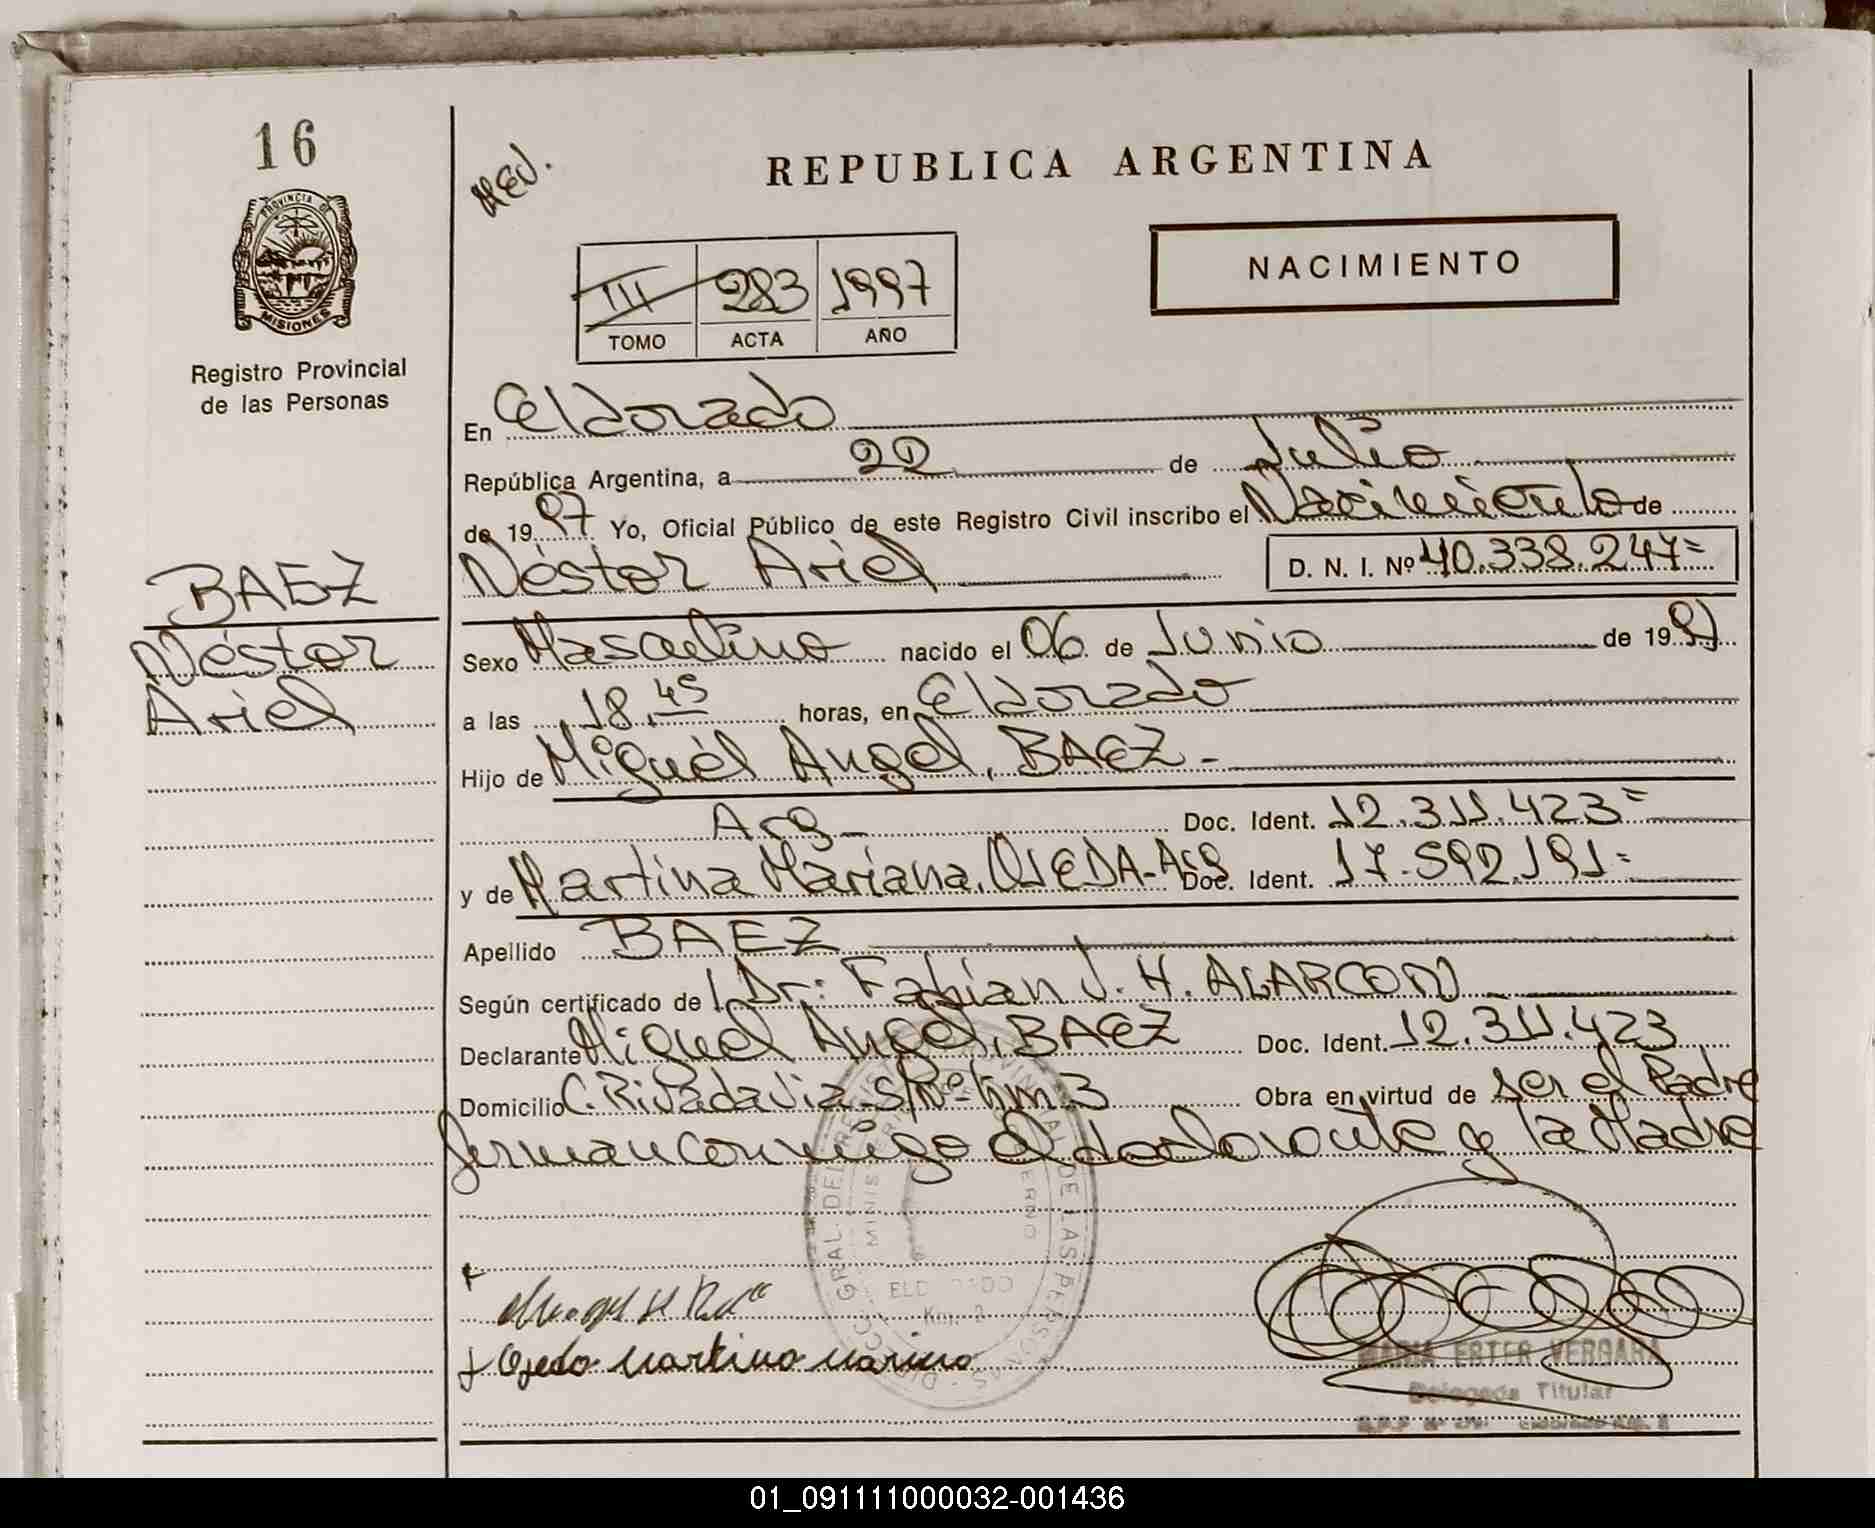 16
PROVINCIA DE
MISIONES
Registro Provincial
de las Personas
REPUBLICA ARGENTINA
NACIMIENTO
III 283 1997
TOMO ACTA AÑO
En Eldorado
República Argentina, a 22 de Julio
de 1997 Yo, Oficial Público de este Registro Civil inscribo el Nacimiento de
Néstor Ariel D. N. I. Nº 40.338.247=
BAEZ
Néstor
Ariel
Sexo Masculino nacido el 06 de Junio de 1997
a las 18,45 horas, en Eldorado
Hijo de Miguel Angel, BAEZ.-
Arg- Doc. Ident. 12.311.423=
y de Martina Mariana, OJEDA-Arg Doc. Ident. 17.592.191=
Apellido BAEZ
Según certificado de l Dr: Fabian J. H. ALARCON
Declarante Miguel Angel, BAEZ Doc. Ident. 12.311.423
Domicilio C. Rivadavia S/Nº-km 3 Obra en virtud de ser el Padre
firman conmigo el declarante y la Madre
Ojeda martina marina
MARIA ESTER VERGARA
Delegada Titular
01_091111000032-001436